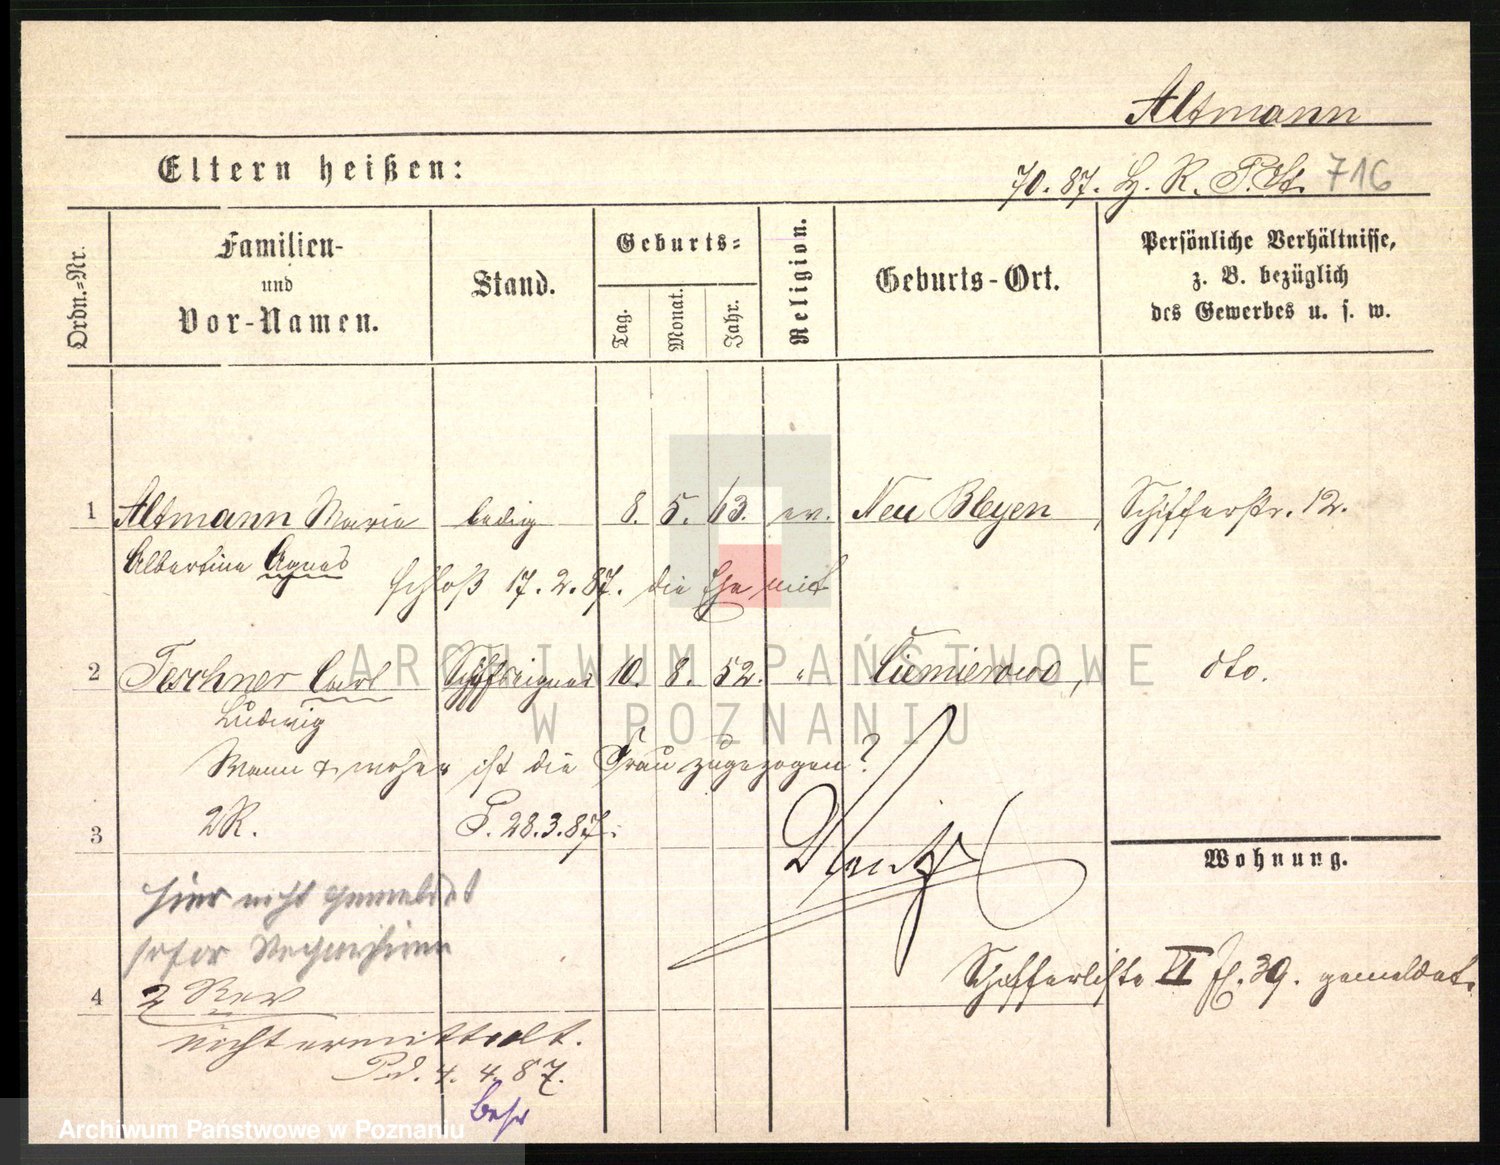 Altmann
Eltern heißen:
70. 87. H. R. P. St. 716
Ordn.-Nr.
Familien-
und
Vor-Namen.
Stand.
Geburts-
Tag.
Monat.
Jahr.
Religion.
Geburts-Ort.
Persönliche Verhältnisse,
z. B. bezüglich
des Gewerbes u. s. w.
1 Altmann Maria ledig 8. 5. 63. ev. Neu Bleyen, Schifferstr. 12.
Albertine Agnes
schloß 17. 2. 87. die Ehe mit
2 Teschner Carl Schiffseigner 10. 8. 52. " Ciemierowo, dto.
Ludwig
Wann & woher ist die Frau zugezogen?
2R. P. 28. 3. 87.
3
Wohnung.
hier nicht gemeldet
Schifferliste VI fl. 39. gemeldet.
4 2 Rev
nicht ermittelt.
Pd. 4. 4. 87.
ARCHIWUM PAŃSTWOWE
W POZNANIU
Archiwum Państwowe w Poznaniu